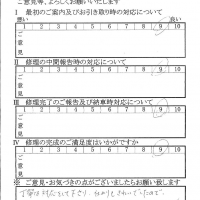 ご意見等、よろしくお願いいたします
Ⅰ 最初のご案内及びお引き取り時の対応について
悪い 良い
1 2 3 4 5 6 7 8 9 10
ご意見
Ⅱ 修理の中間報告時の対応について
1 2 3 4 5 6 7 8 9 10
ご意見
Ⅲ 修理完了のご報告及び納車時対応について
1 2 3 4 5 6 7 8 9 10
ご意見
Ⅳ 修理の完成のご満足度はいかがですか
1 2 3 4 5 6 7 8 9 10
ご意見
※ ご意見・お気づきの点がございましたらお願い致します